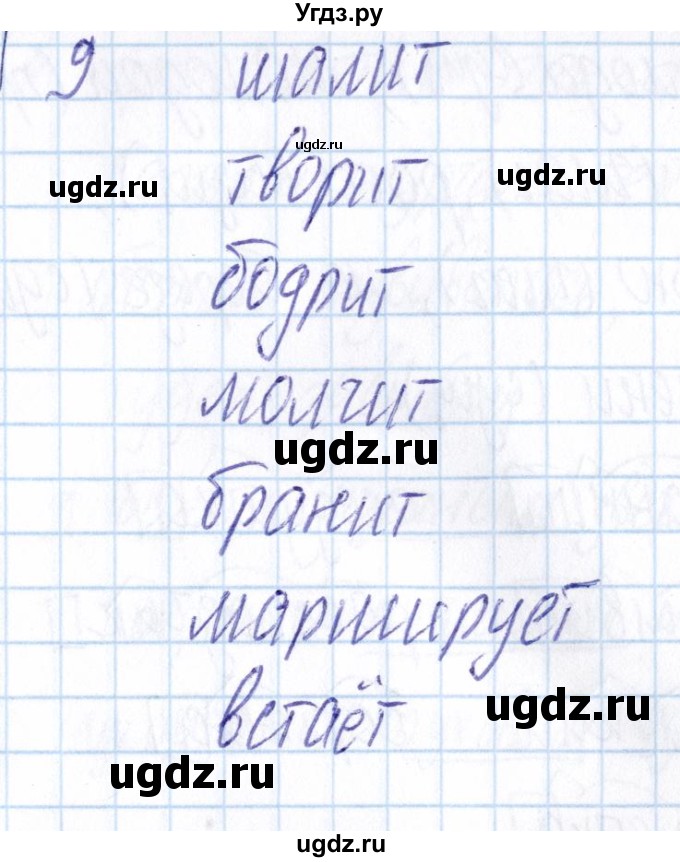 Угдз.ру
9 шалит
ugdz.ru
творит
ugdz.ru
ugdz.ru
бодрит
молчит
ugdz.ru
бранит
марширует
ugdz.ru
встаёт
ugdz.ru
ugdz.ru